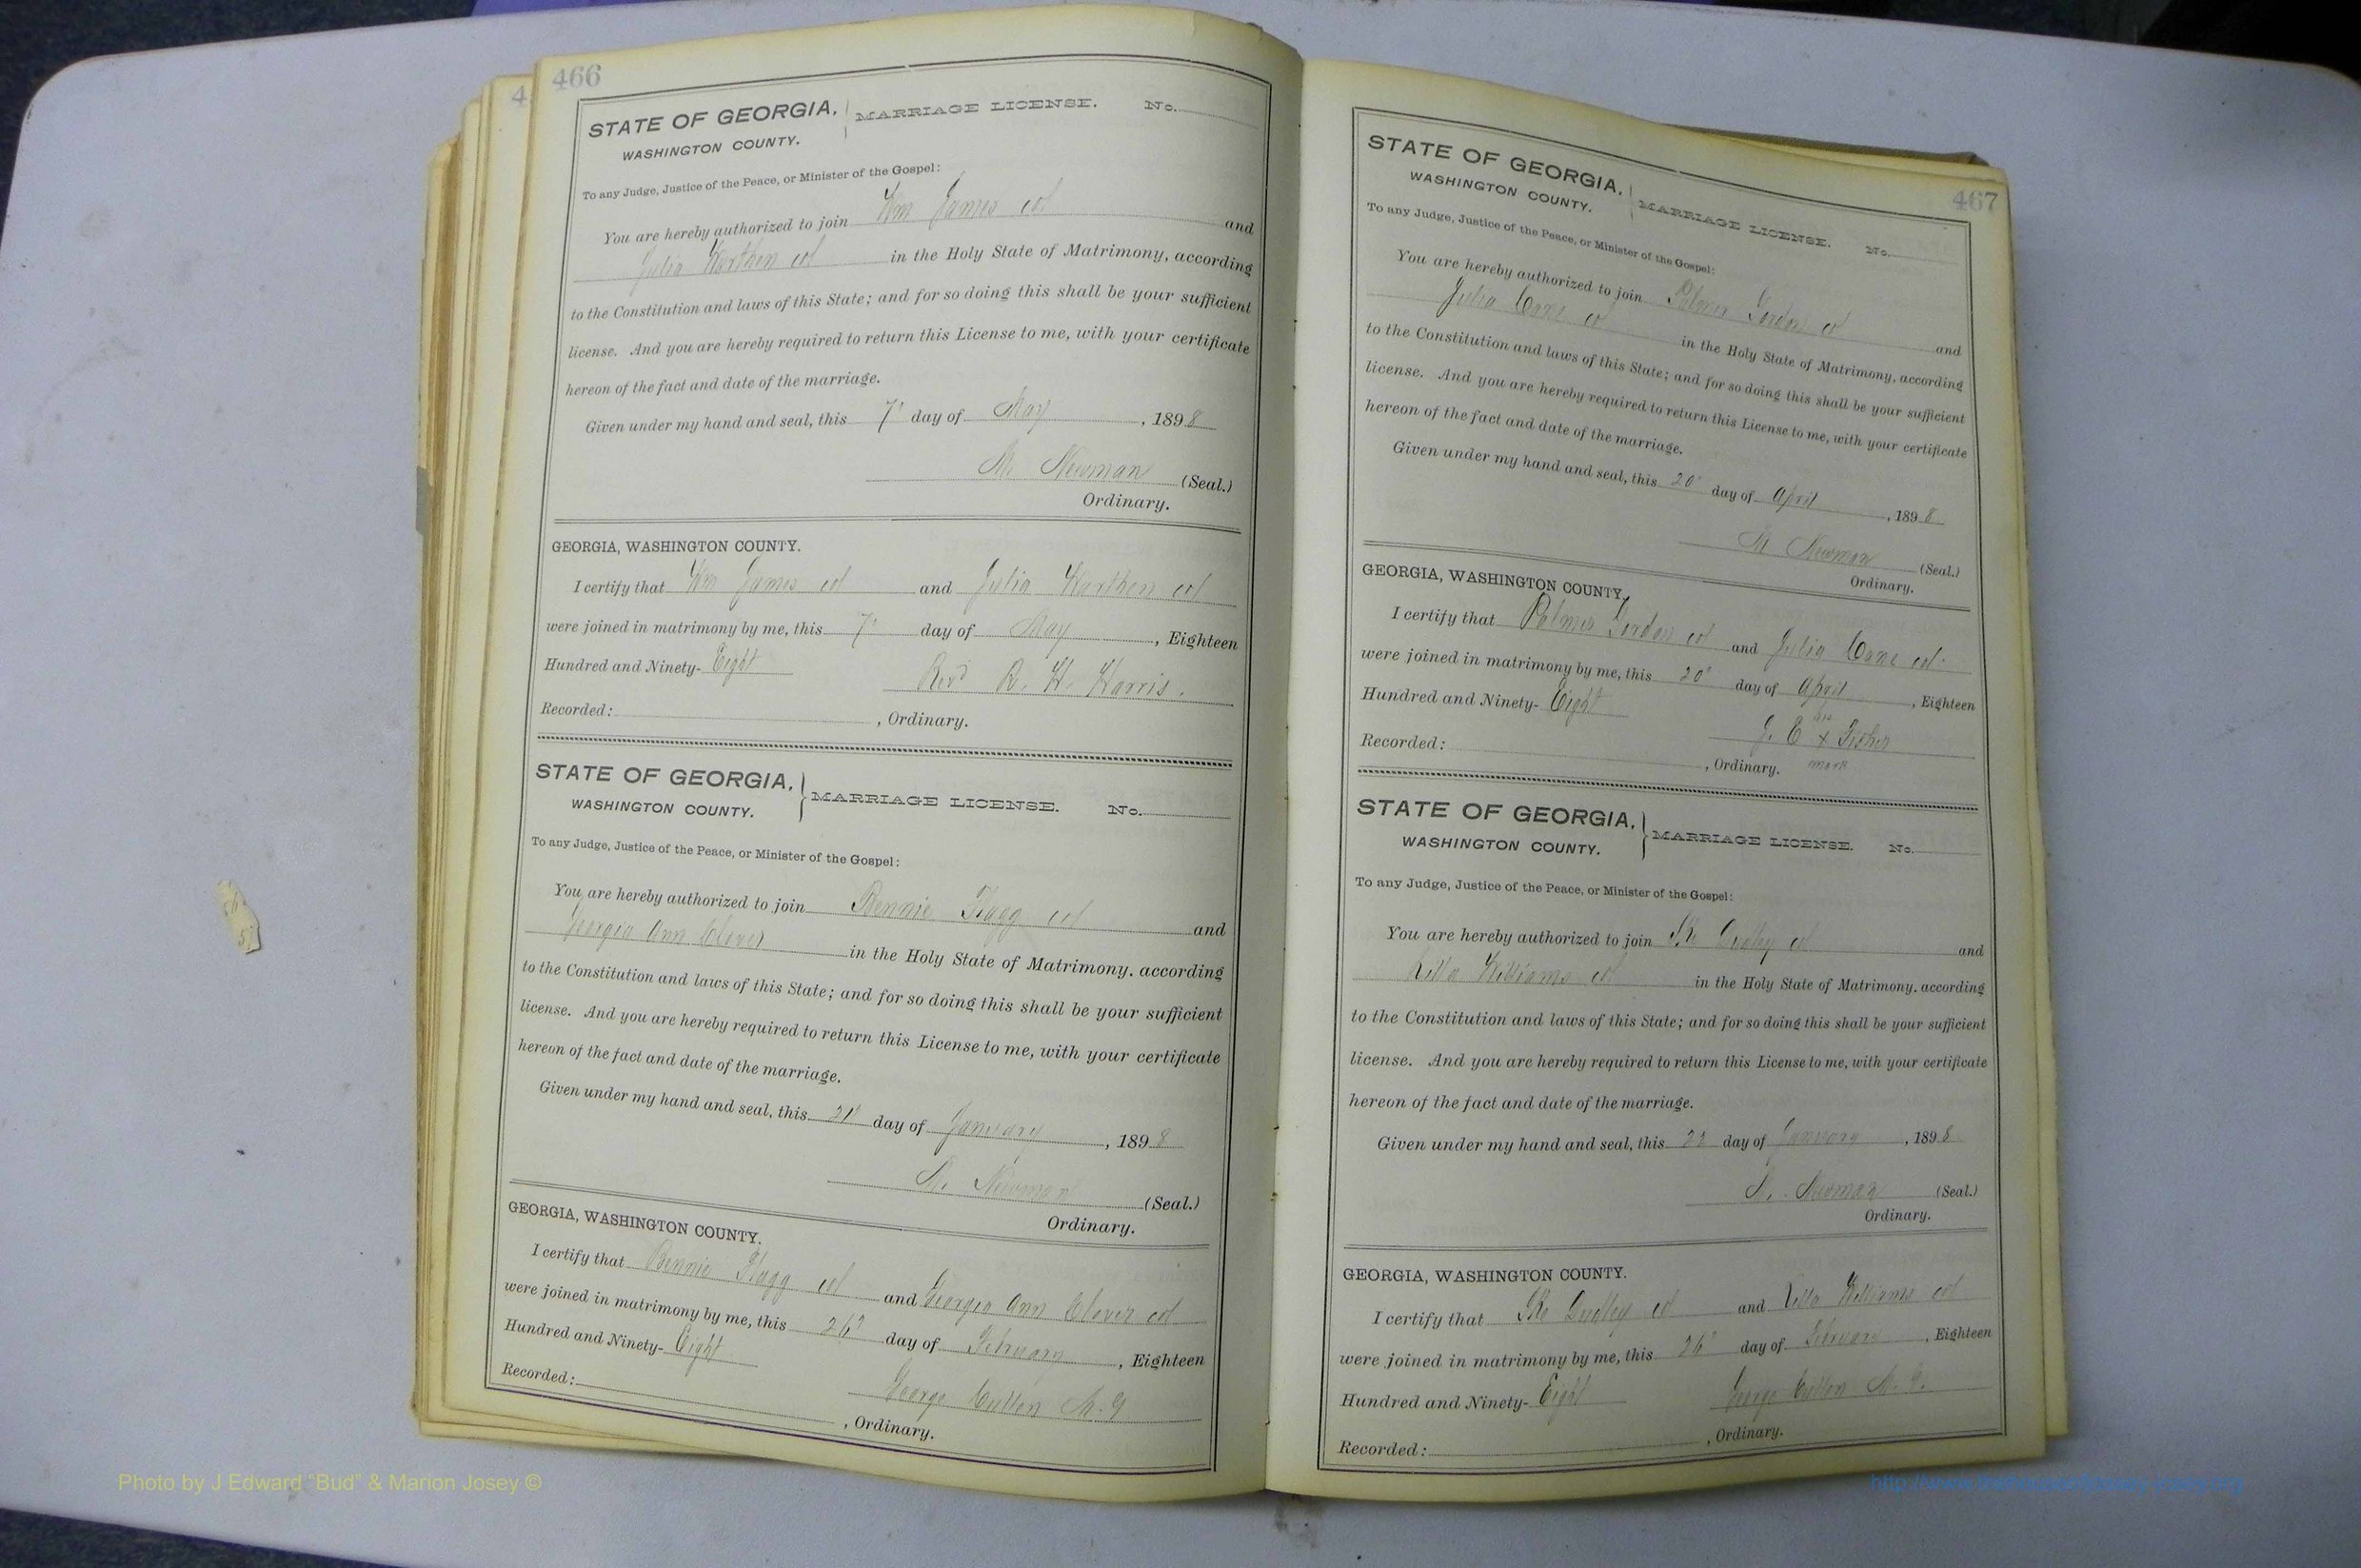 466
4
STATE OF GEORGIA, MARRIAGE LICENSE. No.
WASHINGTON COUNTY.
To any Judge, Justice of the Peace, or Minister of the Gospel:
You are hereby authorized to join Wm James col and
Julia Warthen col in the Holy State of Matrimony, according
to the Constitution and laws of this State; and for so doing this shall be your sufficient
license. And you are hereby required to return this License to me, with your certificate
hereon of the fact and date of the marriage.
Given under my hand and seal, this 7' day of May, 1898
M. Newman (Seal.)
Ordinary.
GEORGIA, WASHINGTON COUNTY.
I certify that Wm James col and Julia Warthen col
were joined in matrimony by me, this 7' day of May, Eighteen
Hundred and Ninety- Eight
Revd R. H. Harris.
Recorded: , Ordinary.
STATE OF GEORGIA, MARRIAGE LICENSE. No.
WASHINGTON COUNTY.
To any Judge, Justice of the Peace, or Minister of the Gospel:
You are hereby authorized to join Bennie Flagg col and
Georgia Ann Clover in the Holy State of Matrimony. according
to the Constitution and laws of this State; and for so doing this shall be your sufficient
license. And you are hereby required to return this License to me, with your certificate
hereon of the fact and date of the marriage.
Given under my hand and seal, this 21' day of January, 1898
M. Newman (Seal.)
Ordinary.
GEORGIA, WASHINGTON COUNTY.
I certify that Bennie Flagg col and Georgia Ann Clover col
were joined in matrimony by me, this 26' day of February, Eighteen
Hundred and Ninety- Eight
George Cullen M. G
Recorded: , Ordinary.
467
STATE OF GEORGIA, MARRIAGE LICENSE. No.
WASHINGTON COUNTY.
To any Judge, Justice of the Peace, or Minister of the Gospel:
You are hereby authorized to join Palmer Gordon col and
Julia Cone col in the Holy State of Matrimony, according
to the Constitution and laws of this State; and for so doing this shall be your sufficient
license. And you are hereby required to return this License to me, with your certificate
hereon of the fact and date of the marriage.
Given under my hand and seal, this 20' day of April, 1898
M Newman (Seal.)
Ordinary.
GEORGIA, WASHINGTON COUNTY.
I certify that Palmer Gordon col and Julia Cone col
were joined in matrimony by me, this 20' day of April, Eighteen
Hundred and Ninety- Eight
his
J. E x Fisher
mark
Recorded: , Ordinary.
STATE OF GEORGIA, MARRIAGE LICENSE. No.
WASHINGTON COUNTY.
To any Judge, Justice of the Peace, or Minister of the Gospel:
You are hereby authorized to join Dudley col and
Williams col in the Holy State of Matrimony. according
to the Constitution and laws of this State; and for so doing this shall be your sufficient
license. And you are hereby required to return this License to me, with your certificate
hereon of the fact and date of the marriage.
Given under my hand and seal, this day of January, 1898
M. Newman (Seal.)
Ordinary.
GEORGIA, WASHINGTON COUNTY.
I certify that Dudley col and Williams col
were joined in matrimony by me, this 26' day of February, Eighteen
Hundred and Ninety- Eight
George Cullen M. G.
Recorded: , Ordinary.
Photo by J Edward "Bud" & Marion Josey ©